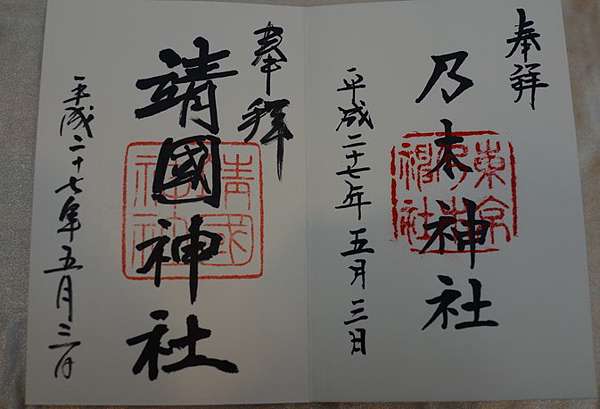 奉拝
乃木神社
東京乃木神社
平成二十七年五月三日
奉拝
靖國神社
靖国神社
平成二十七年五月三日